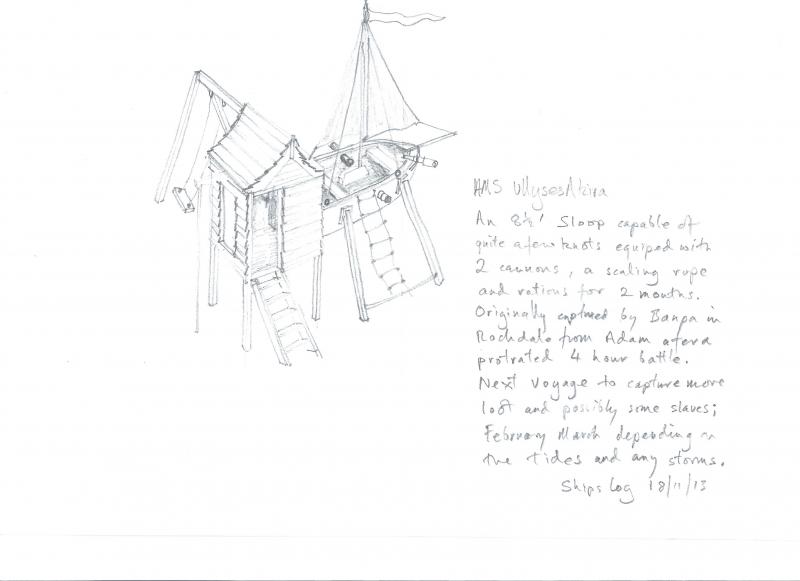 HMS UllysesAkira
An 8½' Sloop capable of
quite a few knots equiped with
2 cannons, a scaling rope
and rations for 2 months.
Originally captured by Banpa in
Rochdale from Adam after a
protrated 4 hour battle.
Next Voyage to capture more
loot and possibly some slaves;
February March depending on
the tides and any storms.
Ships Log 18/11/13